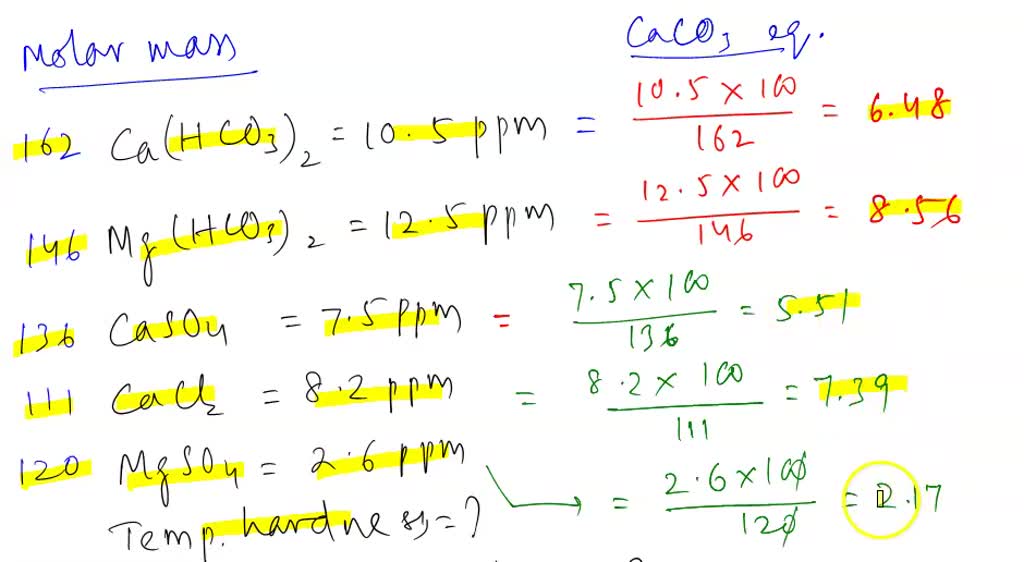 Molar mass CaCO3 eq.
162 Ca(HCO3)2 = 10.5 ppm = 10.5 × 100 / 162 = 6.48
146 Mg(HCO3)2 = 12.5 ppm = 12.5 × 100 / 146 = 8.56
136 CaSO4 = 7.5 ppm = 7.5 × 100 / 136 = 5.51
111 CaCl2 = 8.2 ppm = 8.2 × 100 / 111 = 7.39
120 MgSO4 = 2.6 ppm = 2.6 × 100 / 120 = 2.17
Temp. hardness = ?